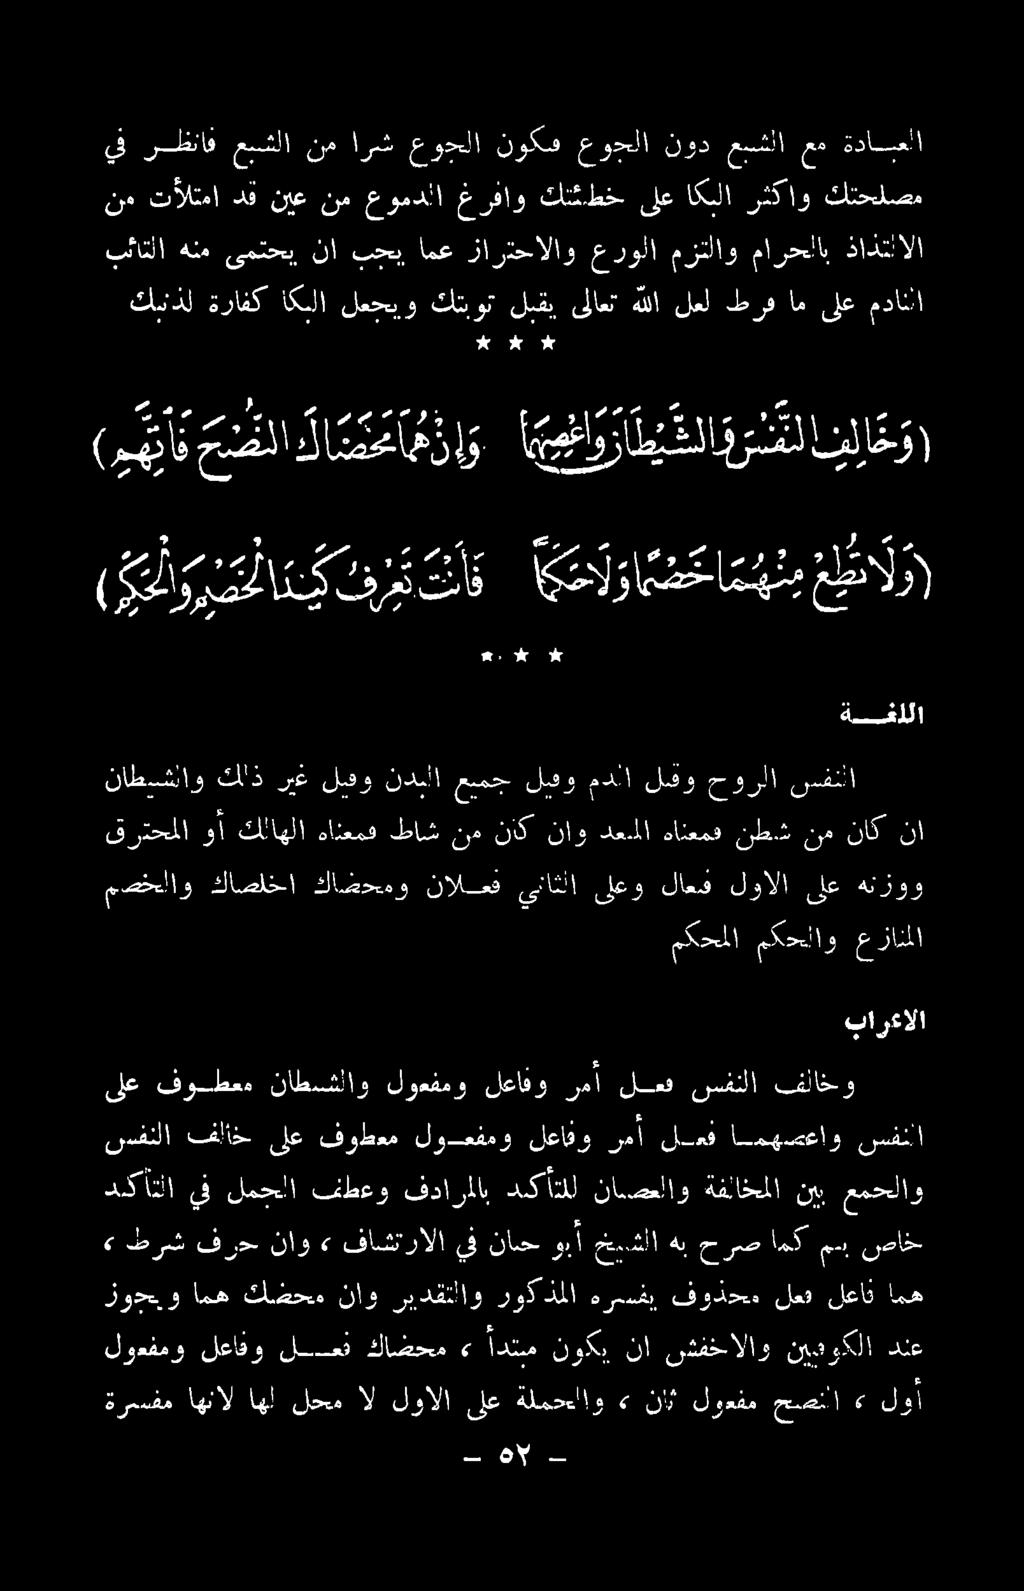 العبـادة مع الشبع دون الجوع فيكون الجوع شرا من الشبع فانظـر في
مصلحتك واكثر البكا على خطئتك وافرغ الدموع من عين قد امتلأت من
الالتذاذ بالحرام والتزم الورع والاحتراز عما يجب ان يحتمى منه التائب
النادم على ما فرط لعل الله تعالى يقبل توبتك ويجعل البكا كفارة لذنبك
★ ★ ★
(وَخَالِفِ النَّفْسَ وَالشَّيْطَانَ وَاعْصِهِمَا وَإِنْ هُمَا مَحَّضَاكَ النُّصْحَ فَاتَّهِمِ)
(وَلَا تُطِعْ مِنْهُمَا خَصْمًا وَلَا حَكَمًا فَأَنْتَ تَعْرِفُ كَيْدَ الْخَصْمِ وَالْحَكَمِ)
★ ★ ★
اللغـــة
النفس الروح وقيل الدم وقيل جميع البدن وقيل غير ذلك والشيطان
ان كان من شطن فمعناه المبعد وان كان من شاط فمعناه الهالك أو المحترق
ووزنه على الاول فيعال وعلى الثاني فعـلان ومحضاك اخلصاك والخصم
المنازع والحكم المحكم
الاعراب
وخالف النفس فعـل أمر وفاعل ومفعول والشيطان معطـوف على
النفس واعصهمـا فعـل أمر وفاعل ومفعـول معطوف على خالف النفس
والجمع بين المخالفة والعصيان للتأكيد بالمرادف وعطف الجمل في التأكيد
خاص بثم كما صرح به الشيخ أبو حيان في الارتشاف ، وان حرف شرط ،
هما فاعل فعل محذوف يفسره المذكور والتقدير وان محضك هما ويجوز
عند الكوفيين والاخفش ان يكون مبتدأ ، محضاك فعــل وفاعل ومفعول
أول ، النصح مفعول ثان ، والجملة على الاول لا محل لها لانها مفسرة
– ٥٢ –